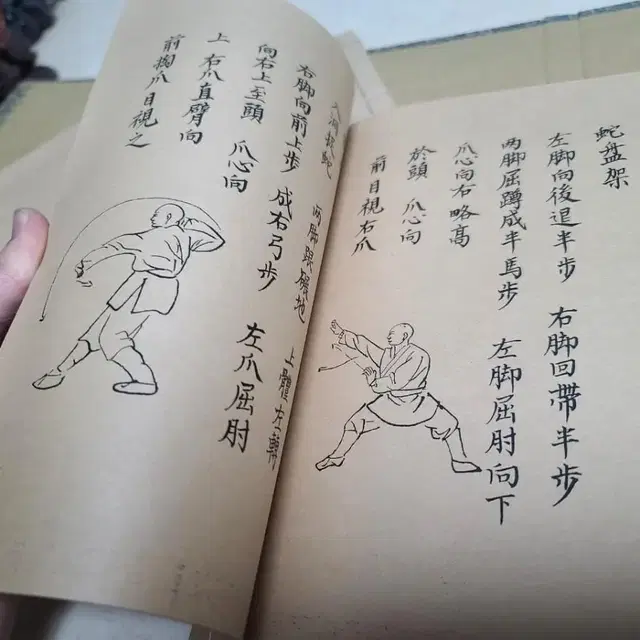 蛇盘架
左脚向後退半步 右脚回帶半步
两脚屈蹲成半馬步 左脚屈肘向下
爪心向右略高
於頭 爪心向
前目視右爪
两脚碾地 上體左轉
右脚向前上步 成右弓步 左爪屈肘
向右上至頭 爪心向
上 右爪直臂向
前掏爪目視之